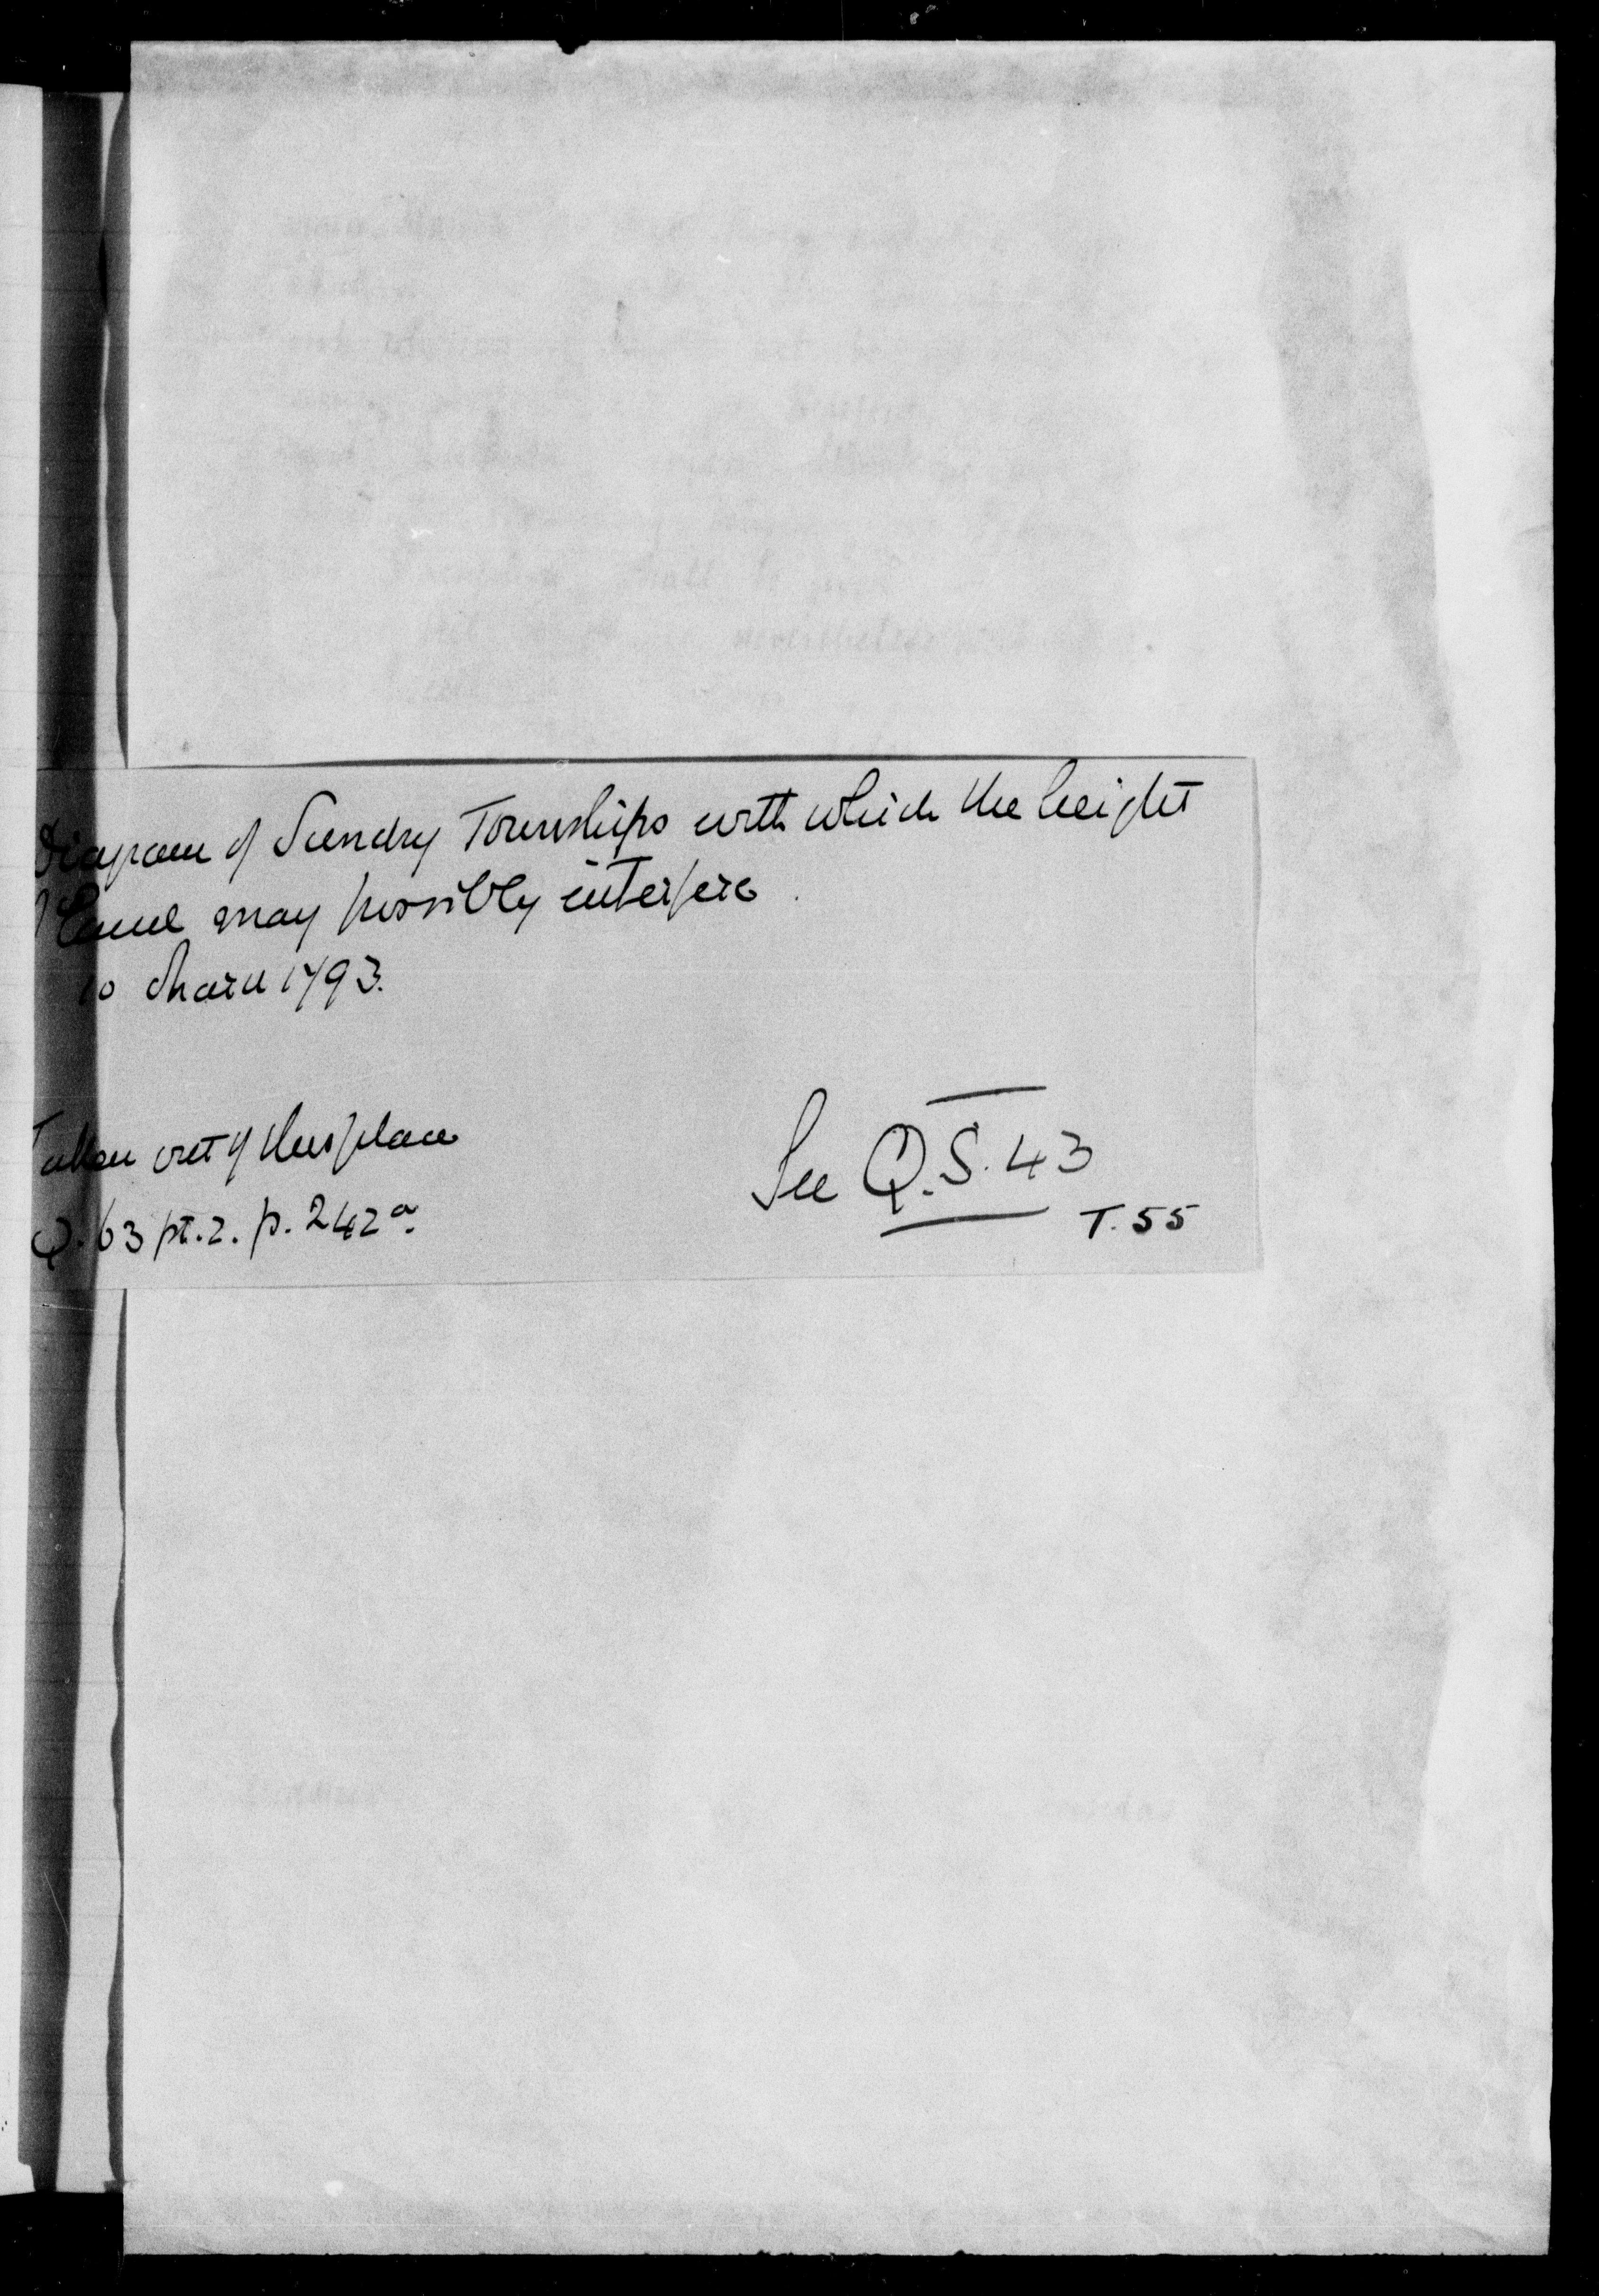 Diagram of Sundry Townships with which the height
of Land may possibly interfere.
10 March 1793.
Taken out of this place
Q. 63 pt. 2. p. 242a.
See Q.S. 43
T. 55